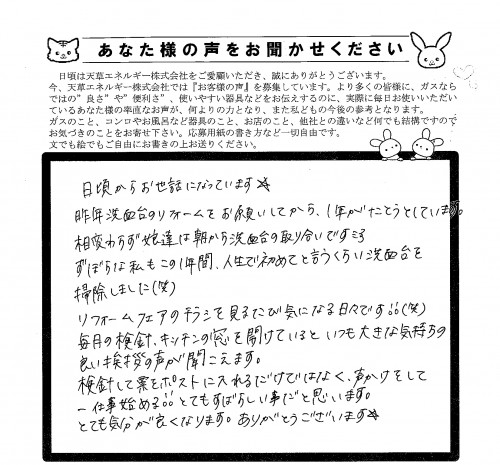 あなた様の声をお聞かせください
日頃は天草エネルギー株式会社をご愛顧いただき、誠にありがとうございます。
今、天草エネルギー株式会社では『お客様の声』を募集しています。より多くの皆様に、ガスなら
ではの"良さ"や"便利さ"、使いやすい器具などをお伝えするのに、実際に毎日お使いいただい
ているあなた様の率直なお声が、何よりの力となり、また私どもの今後の参考となります。
ガスのこと、コンロやお風呂など器具のこと、お店のこと、他社との違いなど何でも結構ですので
お気づきのことをお寄せ下さい。応募用紙の書き方など一切自由です。
文でも絵でもご自由にお書きの上お送りください。
日頃からお世話になっています☆
昨年洗面台のリフォームをお願いしてから、1年がたとうとしています。
相変わらず娘達は朝から洗面台の取り合いです
ずぼらな私もこの1年間、人生で初めてと言うくらい洗面台を
掃除しました(笑)
リフォームフェアのチラシを見るたび気になる日々です!!(笑)
毎月の検針、キッチンの窓を開けていると いつも大きな気持ちの
良い挨拶の声が聞こえます。
検針して票をポストに入れるだけではなく、声かけをして
一仕事始める!! とてもすばらしい事だと思います。
とても気分が良くなります。ありがとうございます☆